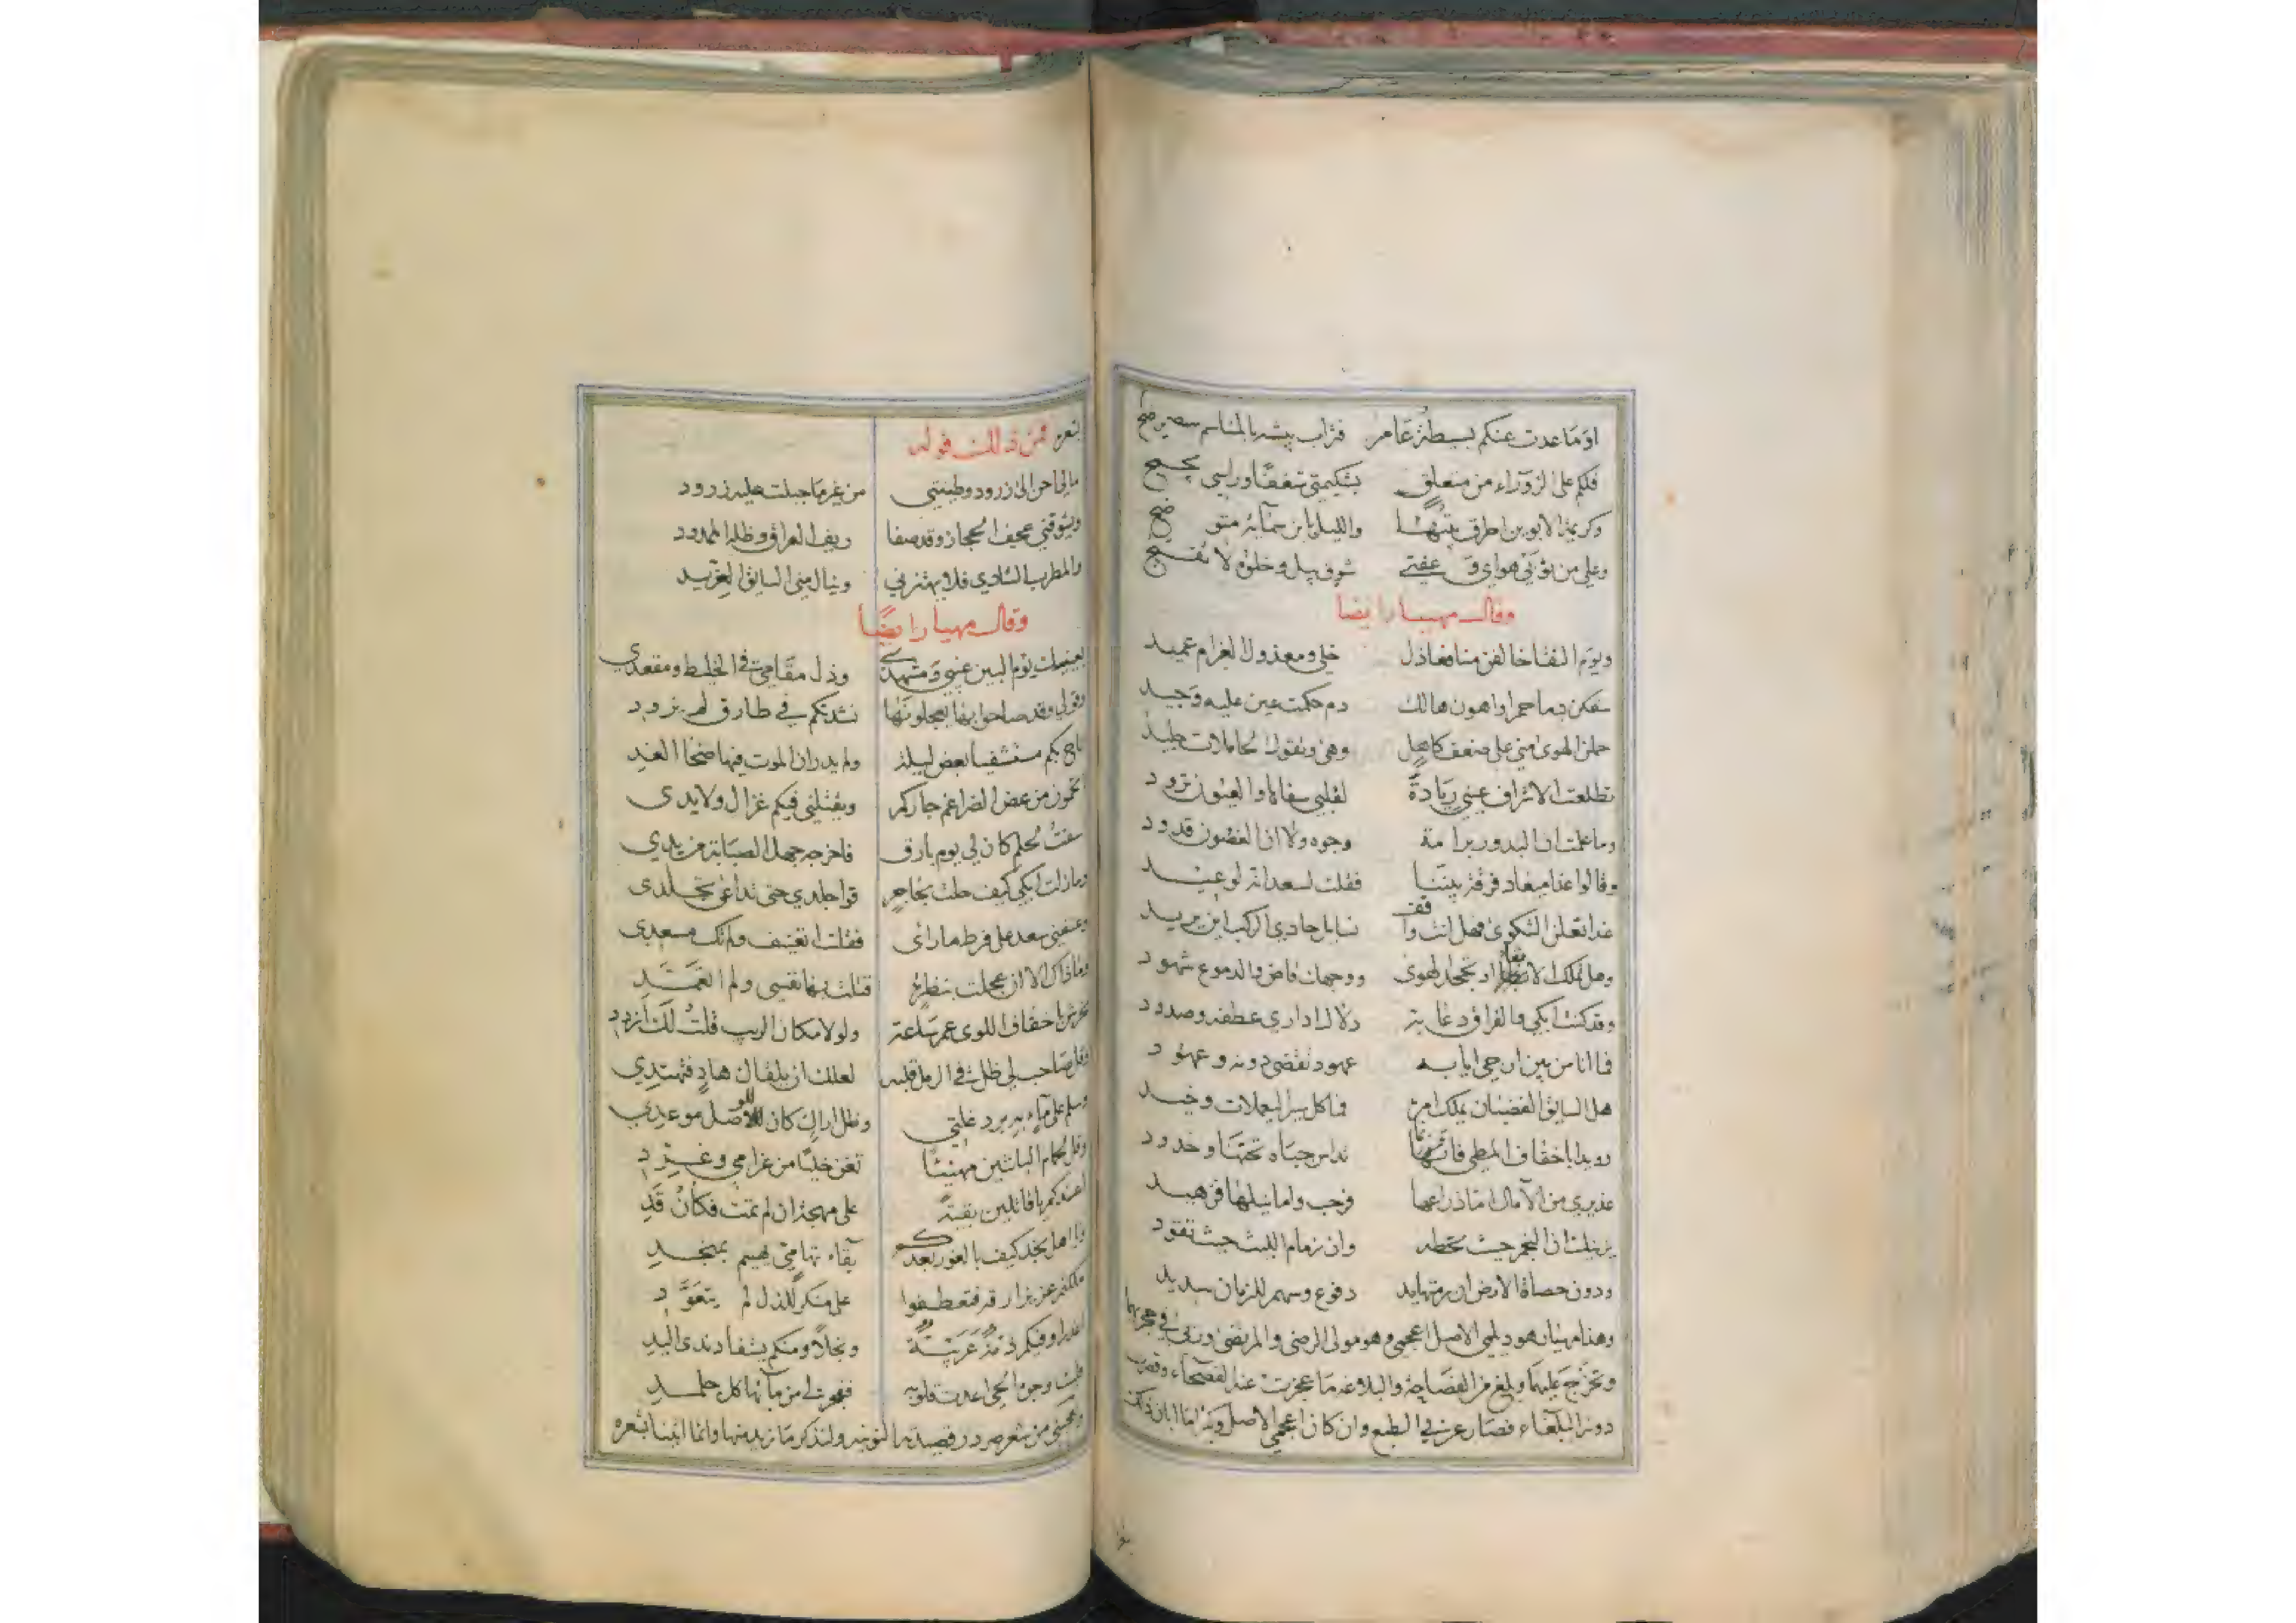 او ما عدت عنكم بسيطة عامر فتراب بيشة بالمناسم
فكم على الزوراء من متعلق بشكيمتي شغفا وراسي يجمح
وكريمة الابوين اطرق بيتها والليل بابن سمائه متوضح
وعلى من ثوبي هواي وعفتي شوق يبل وخلوة لا تفسح
وقال مهيار ايضا
ويوم النقا خالفن منا فعاذل خلي ومعذول الغرام عميد
سفكن دما حرا واهون هالك دم حكمت عين عليه وجيد
حملن الهوى مني على ضعف كاهل وهى وتقول الحاملات جليد
تطلعت الاشراف عيني ريادة لقلبي سفاها والعيون ترود
وما علمت ان البدور برامة وجوه ولا ان الغصون قدود
وقالوا غدا ميعاد فرقة بيننا فقلت لسعد انه لوعيد
غدا تعلن الشكوى فهل انت واقف نسايل حادي الركب اين يريد
وهل تملك الابقاء او تجحد الهوى ووجهك قاض والدموع شهود
وقد كنت ابكي والفراق دعابة دلال اداري عطفه وصدود
فاانا من بين ارجي ايابه عهود تقضى دونه وعهود
هل السايق الغضبان يملك امره فما كل سير اليعملات وخيد
رويدا باخفاف المطي فانما تداس جباه تحتها وخدود
عذيري من الآمال اما ذراعها فرحب واما نيلها فزهيد
يرينك ان النجم حيث تحطه وان زمام الليث حيث تقود
ودون حصاة الارض ان رمتها يد دفوع وسهم للزمان سديد
وهذا مهيار هو ديلمي الاصل اعجمي وهو مولى الرضي والمرتضى وربي في حجرهما
وتخرج عليهما وبلغ من الفصاحة والبلاغة ما عجزت عنه الفصحاء وقصرت
دونه البلغاء فصار عربي الطبع وان كان اعجمي الاصل وكثيرا ما ابان ذلك
بشعره فمن ذلك قوله
مالي احن الى زرود وطينتي من غير ما جبلت عليه زرود
ويشوقني عجف الحجاز وقد صفا ريف العراق وظله الممدود
والمطرب الشادي فلا يهتز بي وينال مني السايق الغريد
وقال مهيار ايضا
بعينيك يوم البين غيبي ومشهدي وذل مقامي في الخليط ومقعدي
وقولي وقد صاحوا بها يعجلونها نشدتكم في طارق لم يزود
اناخ بكم مستشفيا بعض ليلة ولم يدر ان الموت فيها ضحا الغد
تحمون من عض الضراغم جاركم ويقتلني فيكم غزال ولا يدي
سفت لحلم كان لي يوم بارق فاخرجه جهل الصبابة من يدي
وما زلت ابكي كيف حلت بحاجر قوا جلدي حتى تداعى تجلدي
وعنفني سعد على فرط ما راى فقلت اتعنيف ولم تك مسعدي
وما ذاك الا ان عجلت بنظرة قتلت بها نفسي ولم اتعمد
تحرش باخفاف اللوى عمر ساعة ولولا مكان الريب قلت لك ازدد
وقل صاحب لي ظل في الرمل قلبه لعلك ان يلقاك هاد فتهتدي
وسلم على ماء به برد غلتي وظل اراك كان للوصل موعدي
وقل لحمام البانتين مهنئا تغن خليا من غرامي وغرد
اعندكم يا قاتلين بقية على مهجة ان لم تمت فكأن قد
ويا اهل نجد كيف بالغور بعدكم بقاء تهامي يهيم بمنجد
ملكتم عزيزا رقه فتعطفوا على منكر للذل لم يتعود
اغدرا وفيكم ذمة عربية وبخلا ومنكم يستفاد ندى اليد
فليت وجوه الحي اعدت قلوبه ففجر لي من مائها كل جلمد
ويعجبني من شعر صردر قصيدته النونية ولنذكر ما نريد منها وانما اتينا بشعره